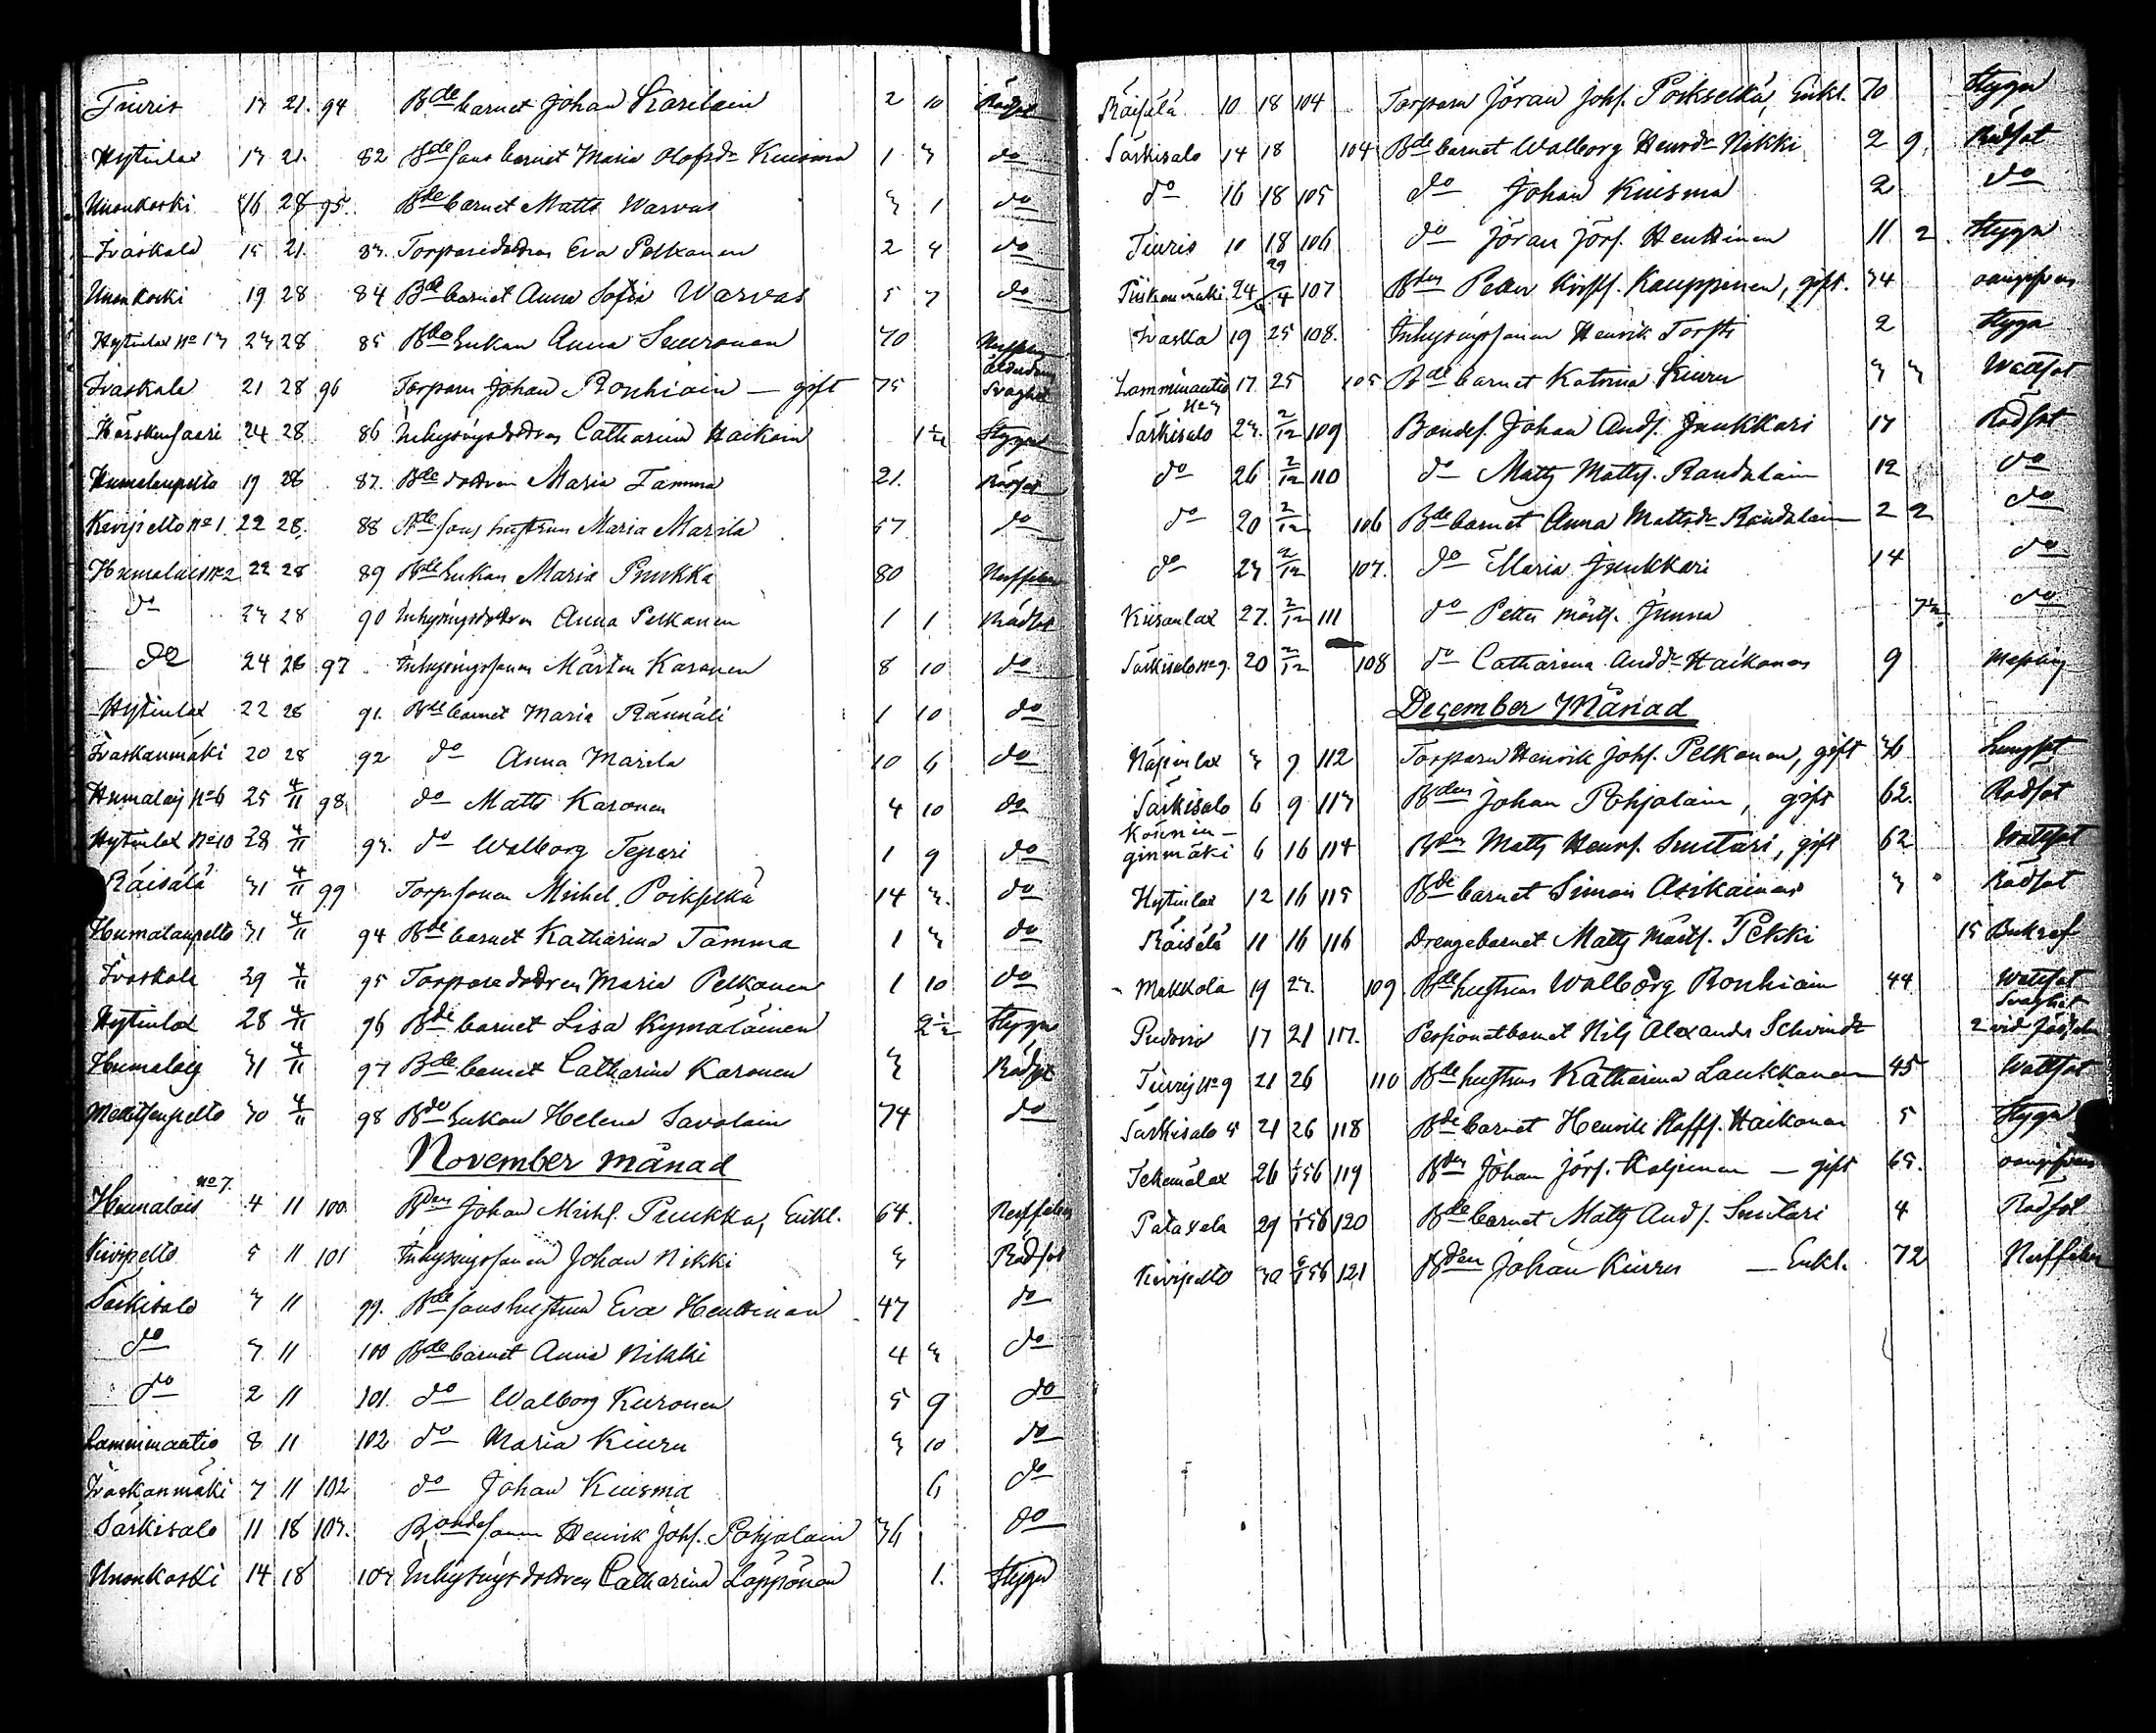 Tiuris 13 21. 94 Bde barnet Johan Karilain 2 10 Rödsot
Hytinlax 13 21. 82 Bde sons barnet Maria Olofsdr Kuisma 1 3 do
Unonkoski 16 28 95. Bde barnet Matts Warvas 3 1 do
Ivaskala 15 21. 83. Torparedottren Eva Pelkonen 2 4 do
Unonkoski 19 28 84 Bde barnet Anna Sofia Warvas 5 7 do
Hytinlax No 13 23 28 85 Bde Enkan Anna Seuronen 70
Ivaskala 21 28 96 Torparn Johan Ronkiain — gift 75 Ålderdoms Svaghet
24 28 86 Inhysingsdottren Catharina Haikoin 1 1/2 Stygn
Humalanpelto 19 28 87. Bde dottren Maria Tamma 21. Rödsot
Kivipelto No 1. 22 28. 88 Bde sons hustrun Maria Marila 57 do
Humalais No 2 22 28 89 Bde Enkan Maria Puukka 80
do 23 28 90 Inhysingsdottren Anna Pelkonen 1 1 Rödsot
do 24 28 97 Inhysingssonen Mårten Karonen 8 10 do
Hytinlax 22 28 91. Bde barnet Maria Rännäli 1 10 do
Ivaskanmäki 20 28 92 do Anna Marila 10 6 do
Humalais No 6 25 4/11 98 do Matts Karonen 4 10 do
Hytinlax No 10 28 4/11 93. do Walborg Tepari 1 9 do
Räisälä 31 4/11 99 Torpsonen Michel Poikselkä 14 3. do
Humalanpelto 31 4/11 94 Bde barnet Katharina Tamma 1 3 do
Ivaskala 29 4/11 95 Torparedottren Maria Pelkonen 1 10 do
Hytinlax 28 4/11 96 Bde barnet Lisa Kymäläinen 2 1/2 Stygn
Humalais 31 4/11 97 Bde barnet Catharina Karonen 3 Rödsot
30 4/11 98 Bde Enkan Helena Savolain 74 do
November månad
Humalais No 7. 4 11 100. Bden Johan Michs. Puukka, Enkl. 64.
Kivipelto 5 11 101 Inhysingssonen Johan Nikki 3 Rödsot
Särkisalo 3 11 99. Bde sons hustrun Eva Henttinen 47 do
do 7 11 100 Bde barnet Anna Nikki 4 3 do
do 2 11 101. do Walborg Kuronen 5 9 do
Lamminantio 8 11 102 do Maria Kiuru 3 10 do
Ivaskanmäki 7 11 102 do Johan Kuisma 6 do
Särkisalo 11 18 103. Bondesonen Henrik Johs. Pohjolain 36 do
Unonkoski 14 18 103 Inhysingsdottren Catharina Läppönen 1. Stygn
Räisälä 10 18 104 Torparn Jöran Johs. Poikselkä, Enkl. 70 Stygn
Särkisalo 14 18 104 Bde barnet Walborg Henrdr Nikki 2 9. Rödsot
do 16 18 105 do Johan Kuisma 2 do
Tiuris 10 18 106 do Jöran Jörs. Henttinen 11 2. Stygn
24 29/4 107 Bden Petter Kauppinen, gift. 74 oangifven
Ivaska 19 25 108. Inhysingssonen Henrik Torsti 2 Stygn
Lamminantio No 3 17 25 105 Bde barnet Katrina Kiuru 3 3 Wattsot
Särkisalo 23. 2/12 109 Bondes. Johan Ands. Junkkari 17 Rödsot
do 26 2/12 110 do Matts Matts. Randalain 12 do
do 20 2/12 106 Bde barnet Anna Mattsdr Randalain 2 2 do
do 23 2/12 107. do Maria Junkkari 14 do
27. 2/12 111 do Petter Mårts. Junna 7 1/2 do
Särkisalo No 9. 20 2/12 108 do Catharina Anddr Haikonen 9 Messling
December Månad
Näpinlax 3 9 112 Torparn Henrik Johs. Pelkonen, gift 36 Lungsot
Särkisalo 6 9 113 Bden Johan Pohjalain, gift 62. Rödsot
Kounin-
ginmäki 6 16 114 Bden Matts Henrs. Suutari, gift 62 Wattsot
Hytinlax 12 16 115 Bde barnet Simon Asikainen 3 Rödsot
Räisälä 11 16 116 Drengebarnet Matts Mårts. Pekki 15 Bukref
Makkola 19 23. 109 Bde hustrun Walborg Ronkiain 44 Wattsot
17 21 117. Nils Alexander Schvindt 2 Svaghet vid födseln
Tiuris No 9 21 26 110 Bde hustrun Katharina Laukkanen 45 Wattsot
Särkisalo 5 21 26 118 Bde barnet Henrik Staffs. Haikonen 5 Stygn
26 1/1 56 119 Bden Johan Jörs. Koljonen — gift 65. oangifven
29 1/1 56 120 Bde barnet Matts Ands. Suutari 4 Rödsot
Kivipelto 30 6/1 56 121 Bden Johan Kiuru — Enkl. 72